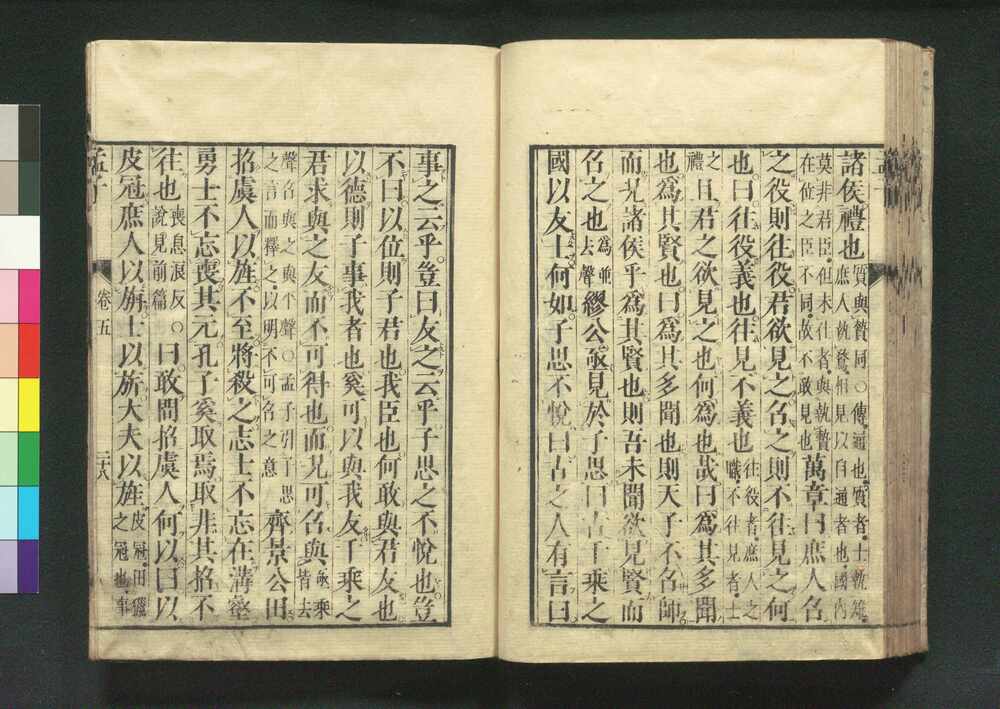 諸侯禮也質與贄同○傳通也質者士執雉庶人執鶩相見以自通者也國內
莫非君臣但未仕者與執贄在位之臣不同故不敢見也萬章曰庶人召
之役則往役君欲見之召之則不往見之何
也曰往役義也往見不義也往役者庶人之職不往見者士
之禮且君之欲見之也何爲也哉曰爲其多聞
也爲其賢也曰爲其多聞也則天子不召師
而況諸侯乎爲其賢也則吾未聞欲見賢而
召之也爲並去聲繆公亟見於子思曰古千乘之
國以友士何如子思不悅曰古之人有言曰
事之云乎豈曰友之云乎子思之不悅也豈
不曰以位則子君也我臣也何敢與君友也
以德則子事我者也奚可以與我友千乘之
君求與之友而不可得也而況可召與亟乘皆去
聲召與之與平聲○孟子引子思之言而釋之以明不可召之意齊景公田
招虞人以旌不至將殺之志士不忘在溝壑
勇士不忘喪其元孔子奚取焉取非其招不
往也喪息浪反說見前篇○曰敢問招虞人何以曰以
皮冠庶人以旃士以旂大夫以旌皮冠田獵之冠也事
孟子 卷五 二十八